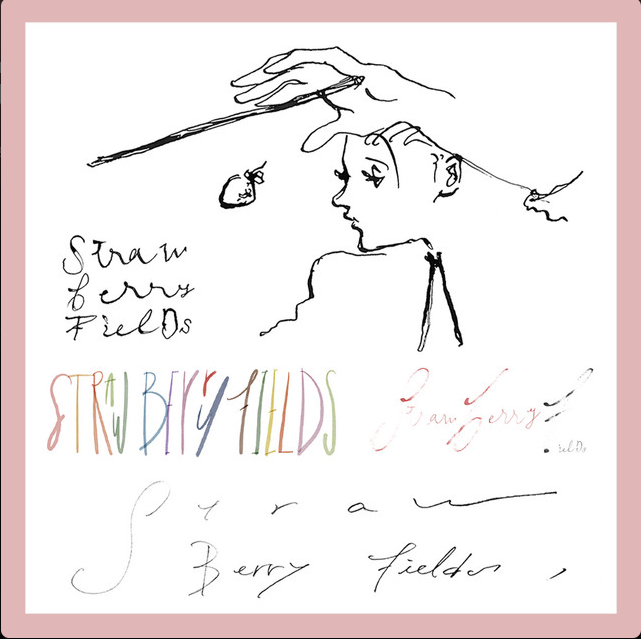 Straw
Berry
FielDs
STRAWBERRY FIELDS
StrawberryF
.ielDs
Straw
Berry Fields,